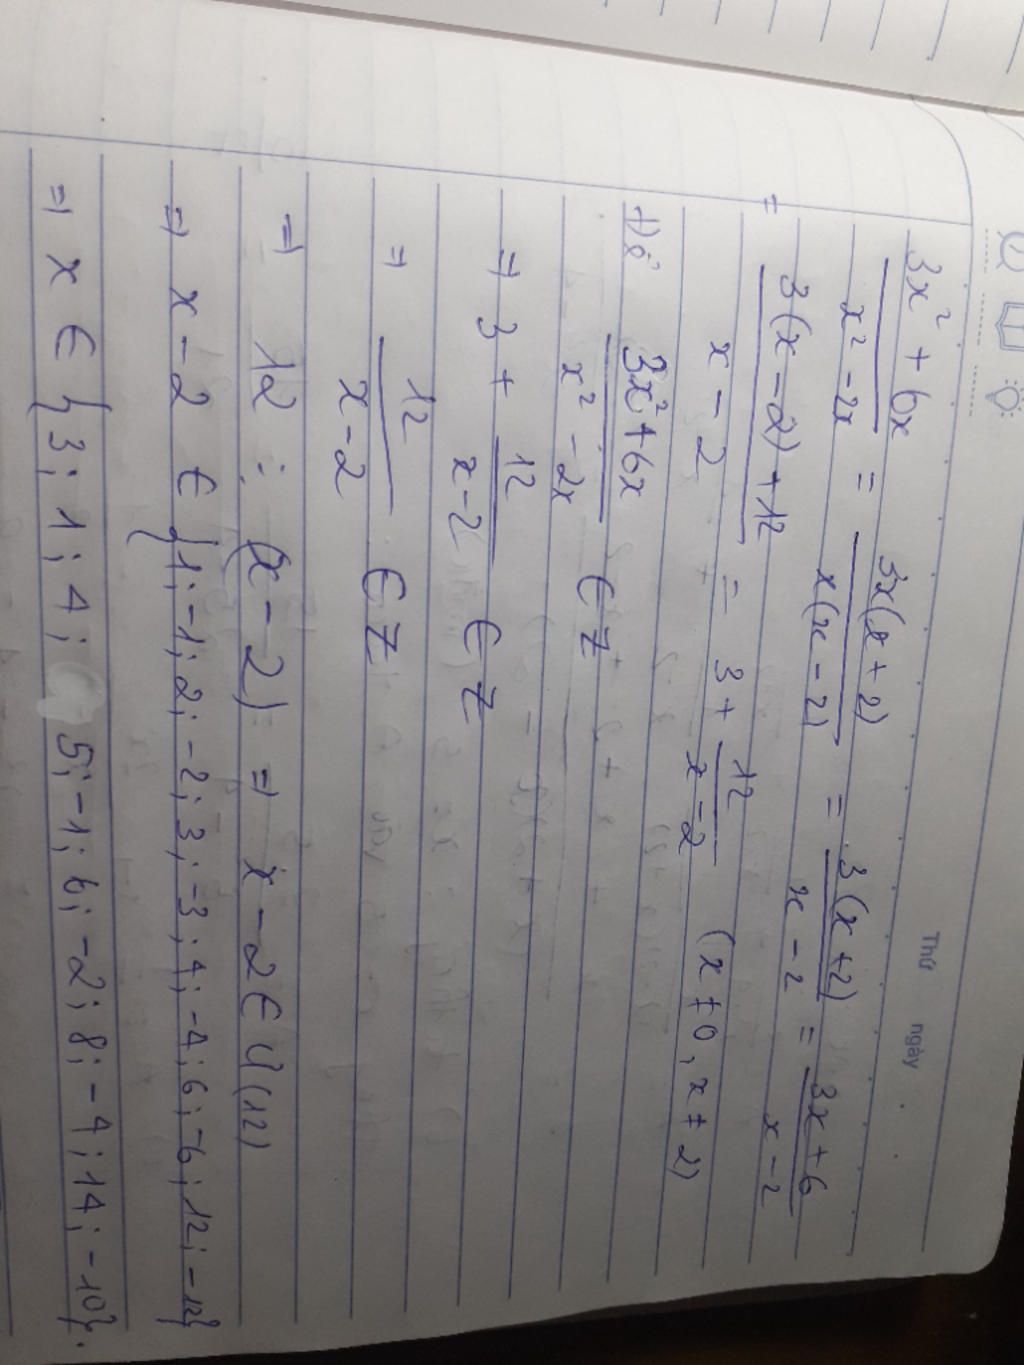 Thứ ngày
3x² + 6x / x² - 2x = 3x(x + 2) / x(x - 2) = 3(x + 2) / x - 2 = 3x + 6 / x - 2
= 3(x - 2) + 12 / x - 2 = 3 + 12 / x - 2 (x ≠ 0, x ≠ 2)
Để 3x² + 6x / x² - 2x ∈ Z
⇒ 3 + 12 / x - 2 ∈ Z
⇒ 12 / x - 2 ∈ Z
⇒ 12 ⋮ (x - 2) ⇒ x - 2 ∈ Ư(12)
⇒ x - 2 ∈ {1; -1; 2; -2; 3; -3; 4; -4; 6; -6; 12; -12}
⇒ x ∈ {3; 1; 4; 5; -1; 6; -2; 8; -4; 14; -10}.